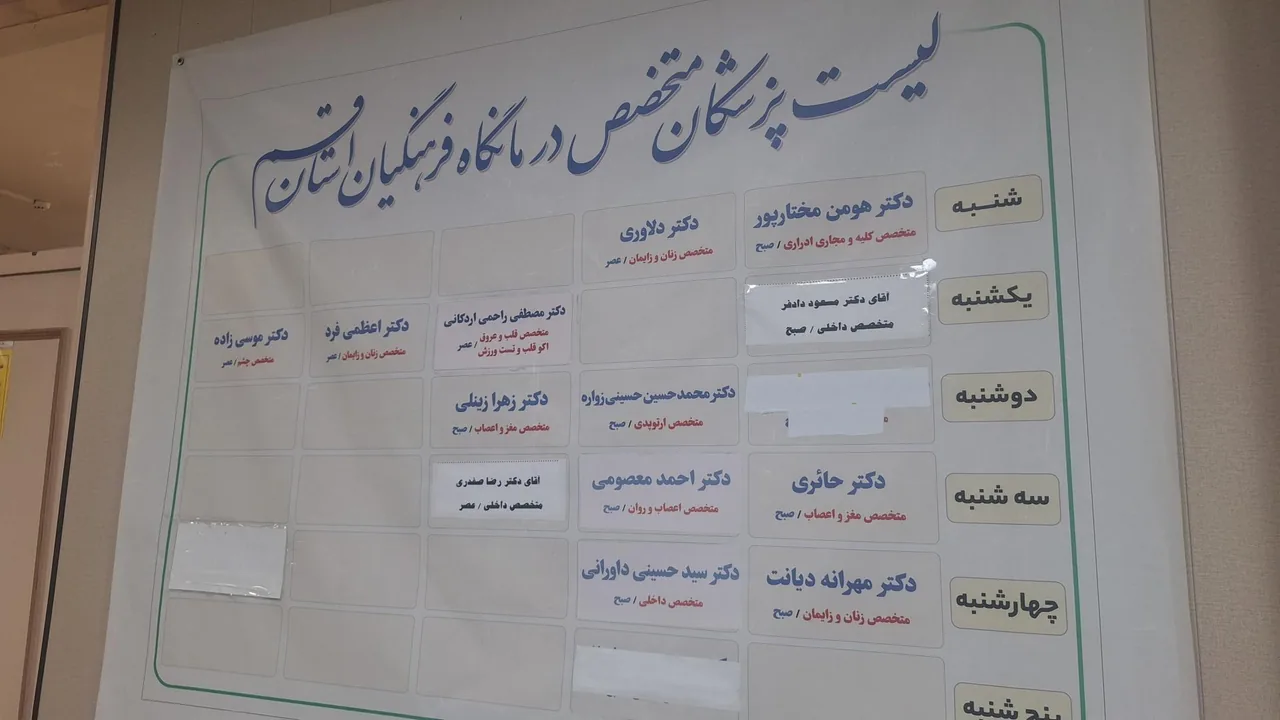 لیست پزشکان متخصص درمانگاه فرهنگیان استان قم
شنبه
دکتر هومن مختارپور
متخصص کلیه و مجاری ادراری / صبح
دکتر دلاوری
متخصص زنان و زایمان / عصر
یکشنبه
آقای دکتر مسعود دادفر
متخصص داخلی / صبح
دکتر مصطفی راحمی اردکانی
متخصص قلب و عروق
اکو قلب و تست ورزش / عصر
دکتر اعظمی فرد
متخصص زنان و زایمان / عصر
دکتر موسی زاده
متخصص چشم / عصر
دوشنبه
دکتر محمدحسین حسینی زواره
متخصص ارتوپدی / صبح
دکتر زهرا زینلی
متخصص مغز و اعصاب / صبح
سه شنبه
دکتر حائری
متخصص مغز و اعصاب / صبح
دکتر احمد معصومی
متخصص اعصاب و روان / صبح
آقای دکتر رضا صفدری
متخصص داخلی / عصر
چهارشنبه
دکتر مهرانه دیانت
متخصص زنان و زایمان / صبح
دکتر سید حسینی داورانی
متخصص داخلی / صبح
پنج شنبه